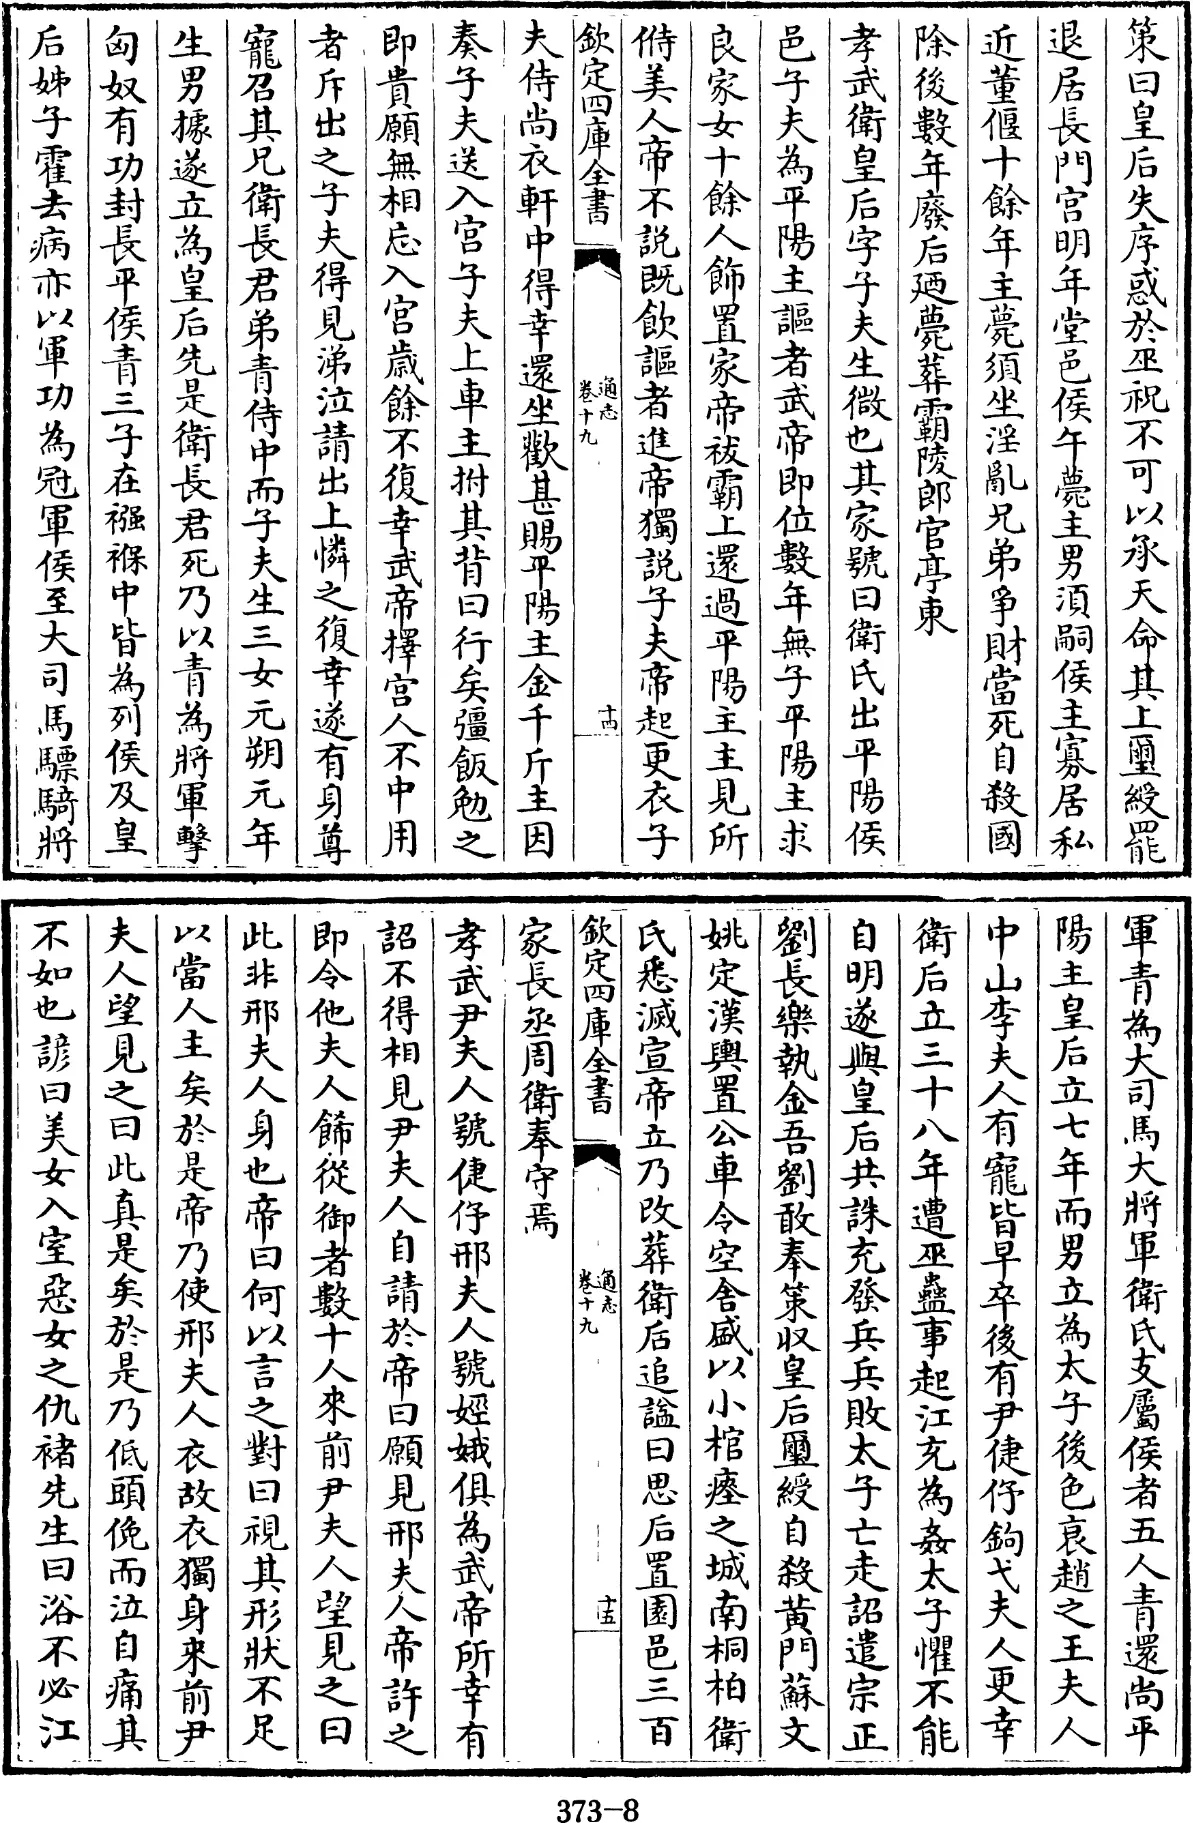 策曰皇后失序惑於巫祝不可以承天命其上璽綬罷
退居長門宫明年堂邑侯午薨主男須嗣侯主寡居私
近董偃十餘年主薨須坐淫亂兄弟爭財當死自殺國
除後數年廢后廼薨葬霸陵郎官亭東
孝武衛皇后字子夫生微也其家號曰衛氏出平陽侯
邑子夫為平陽主謳者武帝即位數年無子平陽主求
良家女十餘人飾置家帝祓霸上還過平陽主主見所
偫美人帝不說既飲謳者進帝獨說子夫帝起更衣子
欽定四庫全書
通志
卷十九
十四
夫侍尚衣軒中得幸還坐歡甚賜平陽主金千斤主因
奏子夫送入宫子夫上車主拊其背曰行矣彊飯勉之
即貴願無相忘入宫歲餘不復幸武帝擇宫人不中用
者斥出之子夫得見涕泣請出上憐之復幸遂有身尊
寵召其兄衛長君弟青侍中而子夫生三女元朔元年
生男據遂立為皇后先是衛長君死乃以青為將軍擊
匈奴有功封長平侯青三子在襁褓中皆為列侯及皇
后姊子霍去病亦以軍功為冠軍侯至大司馬驃騎將
軍青為大司馬大將軍衛氏支屬侯者五人青還尚平
陽主皇后立七年而男立為太子後色衰趙之王夫人
中山李夫人有寵皆早卒後有尹倢伃鉤弋夫人更幸
衛后立三十八年遭巫蠱事起江充為姦太子懼不能
自明遂與皇后共誅充發兵兵敗太子亡走詔遣宗正
劉長樂執金吾劉敢奉策收皇后璽綬自殺黄門蘇文
姚定漢輿置公車令空舍盛以小棺瘞之城南桐柏衛
氏悉滅宣帝立乃改葬衛后追諡曰思后置園邑三百
欽定四庫全書
通志
卷十九
十五
家長丞周衛奉守焉
孝武尹夫人號倢伃邢夫人號娙娥俱為武帝所幸有
詔不得相見尹夫人自請於帝曰願見邢夫人帝許之
即令他夫人餙從御者數十人來前尹夫人望見之曰
此非邢夫人身也帝曰何以言之對曰視其形狀不足
以當人主矣於是帝乃使邢夫人衣故衣獨身來前尹
夫人望見之曰此真是矣於是乃低頭俛而泣自痛其
不如也諺曰美女入室惡女之仇禇先生曰浴不必江
373-8